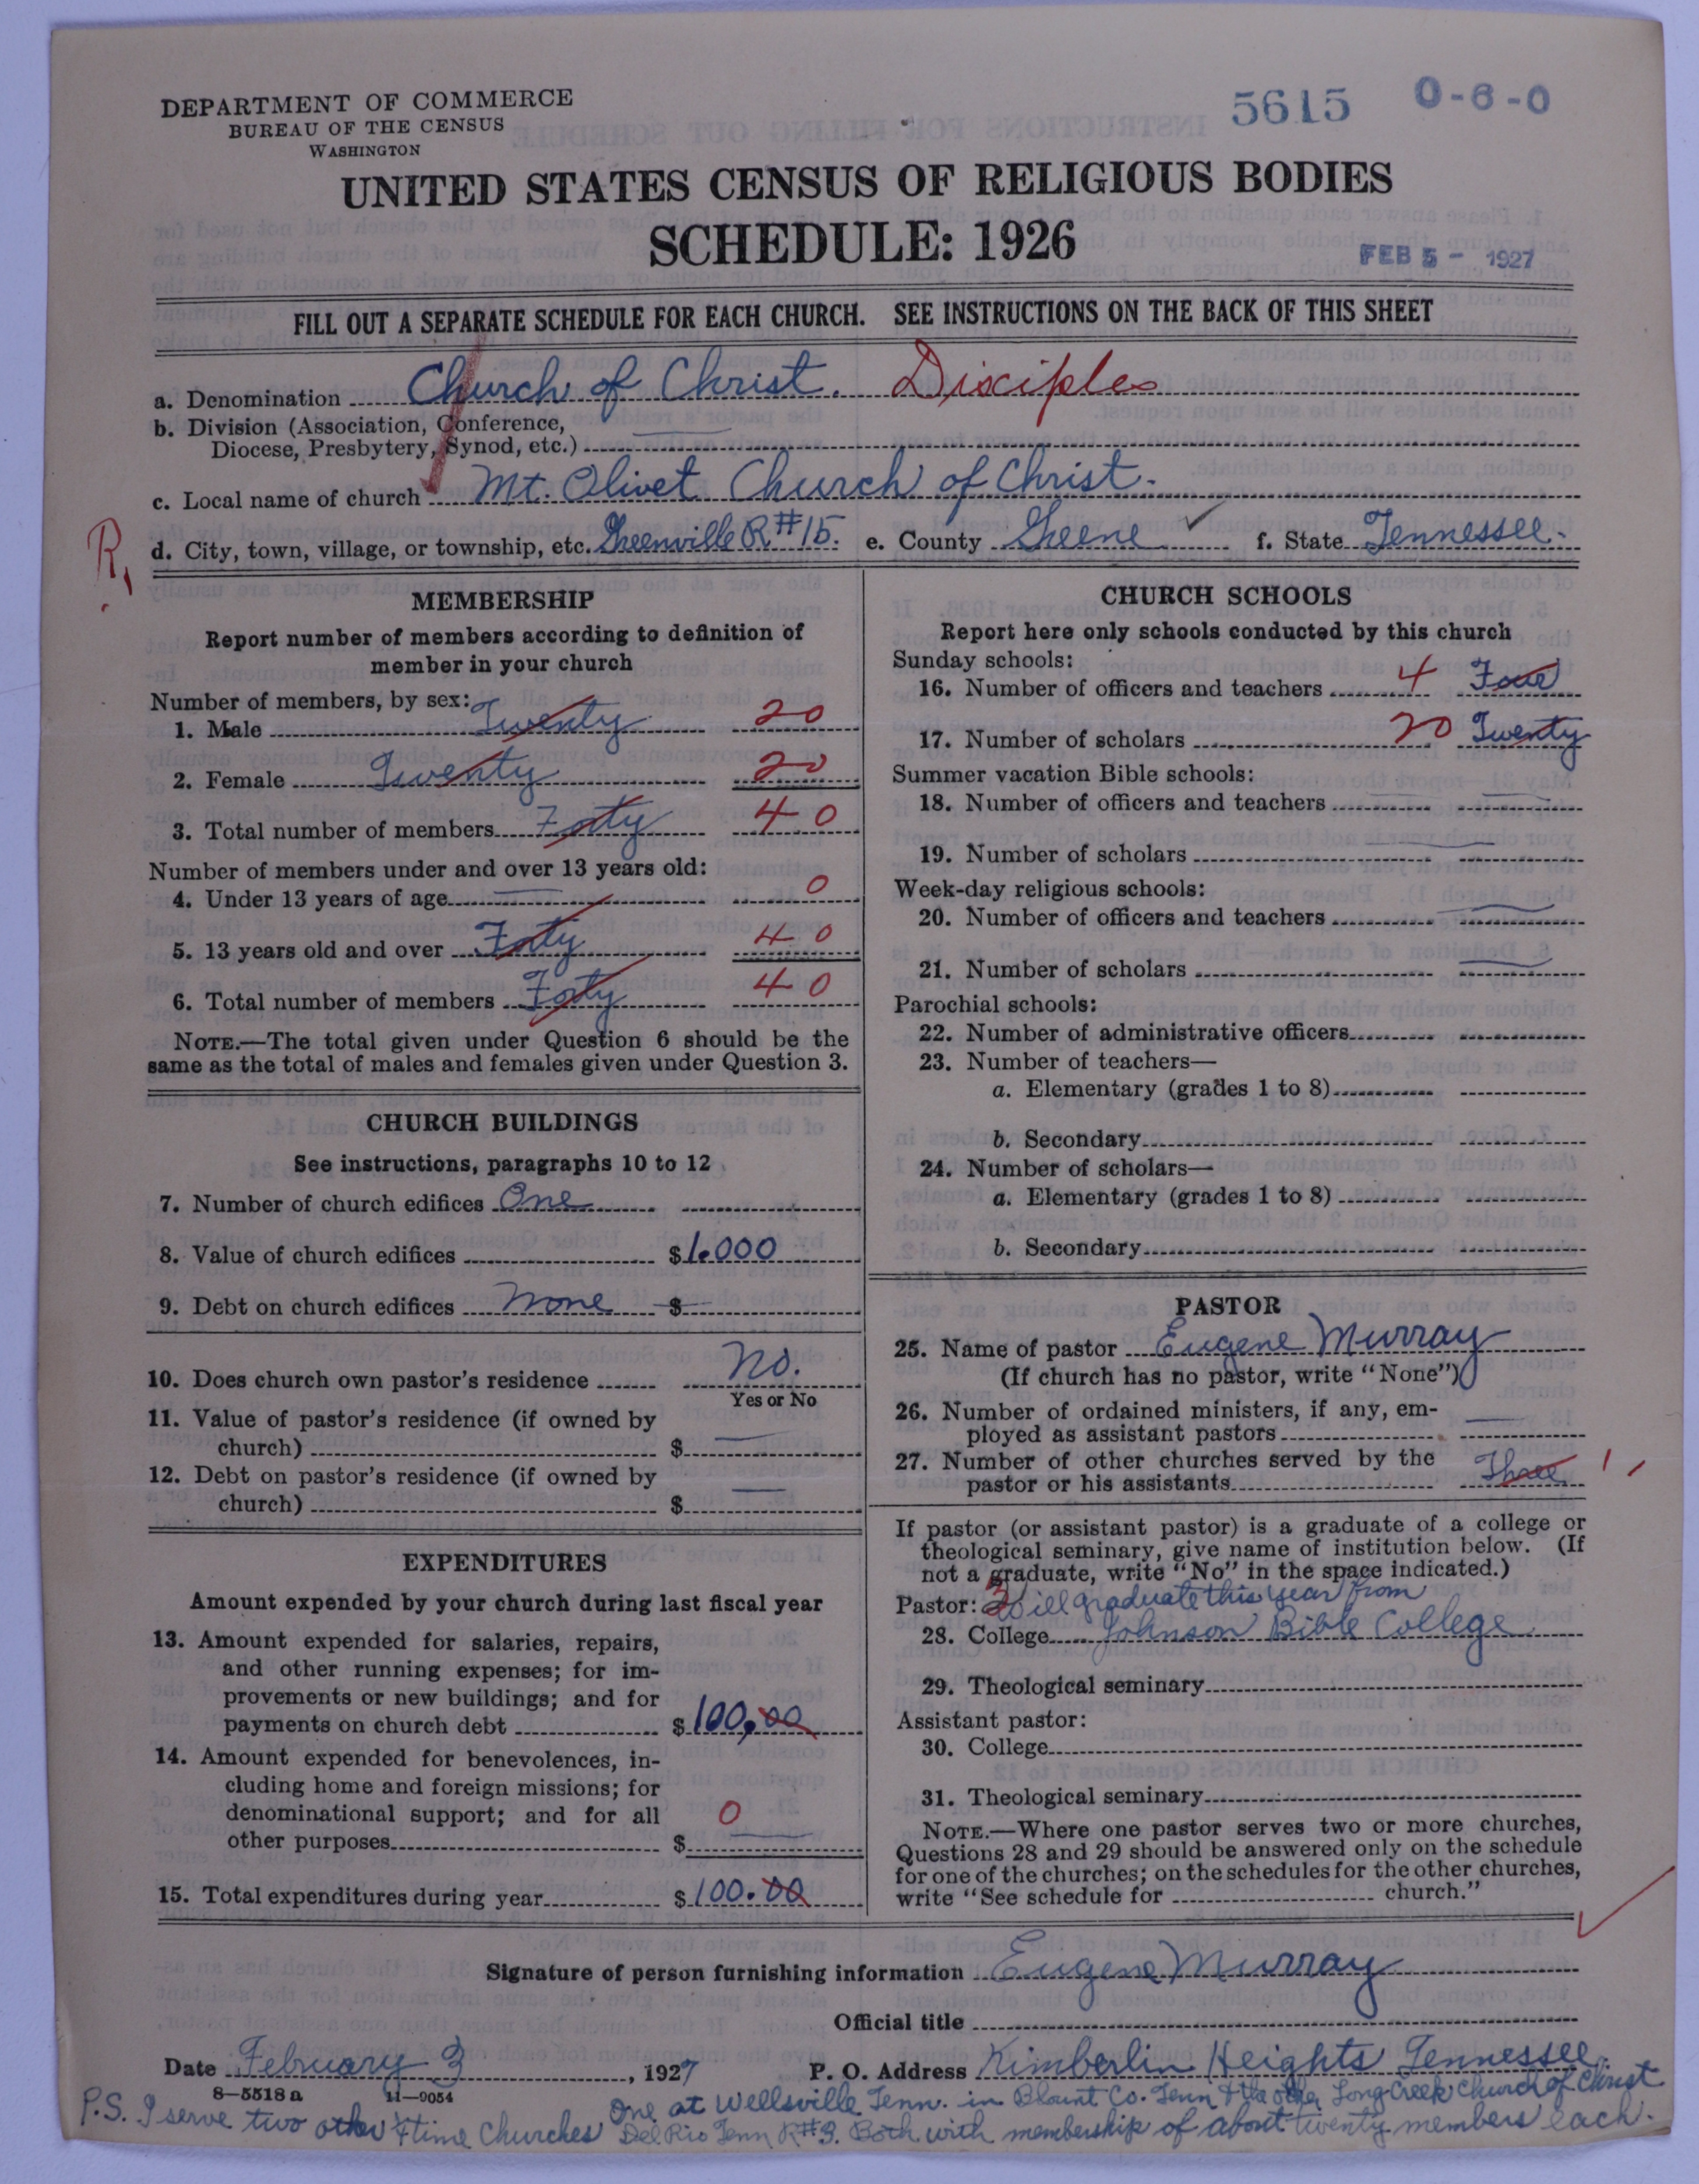 DEPARTMENT OF COMMERCE
BUREAU OF THE CENSUS
WASHINGTON
5615 0-6-0
UNITED STATES CENSUS OF RELIGIOUS BODIES
SCHEDULE: 1926
FEB 5 - 1927
FILL OUT A SEPARATE SCHEDULE FOR EACH CHURCH. SEE INSTRUCTIONS ON THE BACK OF THIS SHEET
a. Denomination Church of Christ. Disciples
b. Division (Association, Conference,
Diocese, Presbytery, Synod, etc.)
c. Local name of church Mt. Olivet Church of Christ.
R.
d. City, town, village, or township, etc. Greenville R#15. e. County Greene f. State Tennessee.
MEMBERSHIP
Report number of members according to definition of
member in your church
Number of members, by sex:
1. Male Twenty 20
2. Female Twenty 20
3. Total number of members Forty 40
Number of members under and over 13 years old:
4. Under 13 years of age 0
5. 13 years old and over Forty 40
6. Total number of members Forty 40
NOTE.—The total given under Question 6 should be the
same as the total of males and females given under Question 3.
CHURCH BUILDINGS
See instructions, paragraphs 10 to 12
7. Number of church edifices One
8. Value of church edifices $1.000
9. Debt on church edifices None $
10. Does church own pastor's residence No.
Yes or No
11. Value of pastor's residence (if owned by
church) $
12. Debt on pastor's residence (if owned by
church) $
EXPENDITURES
Amount expended by your church during last fiscal year
13. Amount expended for salaries, repairs,
and other running expenses; for im-
provements or new buildings; and for
payments on church debt $100.00
14. Amount expended for benevolences, in-
cluding home and foreign missions; for
denominational support; and for all
other purposes $ 0
15. Total expenditures during year $100.00
CHURCH SCHOOLS
Report here only schools conducted by this church
Sunday schools:
16. Number of officers and teachers 4 Four
17. Number of scholars 20 Twenty
Summer vacation Bible schools:
18. Number of officers and teachers
19. Number of scholars
Week-day religious schools:
20. Number of officers and teachers
21. Number of scholars
Parochial schools:
22. Number of administrative officers
23. Number of teachers—
a. Elementary (grades 1 to 8)
b. Secondary
24. Number of scholars—
a. Elementary (grades 1 to 8)
b. Secondary
PASTOR
25. Name of pastor Eugene Murray
(If church has no pastor, write "None")
26. Number of ordained ministers, if any, em-
ployed as assistant pastors
27. Number of other churches served by the
pastor or his assistants Three
If pastor (or assistant pastor) is a graduate of a college or
theological seminary, give name of institution below. (If
not a graduate, write "No" in the space indicated.)
Pastor: Will graduate this year from
28. College Johnson Bible College
29. Theological seminary
Assistant pastor:
30. College
31. Theological seminary
NOTE.—Where one pastor serves two or more churches,
Questions 28 and 29 should be answered only on the schedule
for one of the churches; on the schedules for the other churches,
write "See schedule for church."
Signature of person furnishing information Eugene Murray
Official title
Date February 3, 1927 P. O. Address Kimberlin Heights Tennessee.
8—5518a 11—9054
P.S. I serve two other ¼ time Churches One at Wellsville Tenn. in Blount Co. Tenn & the other Long Creek Church of Christ
Del Rio Tenn R#3. Both with membership of about twenty members each.